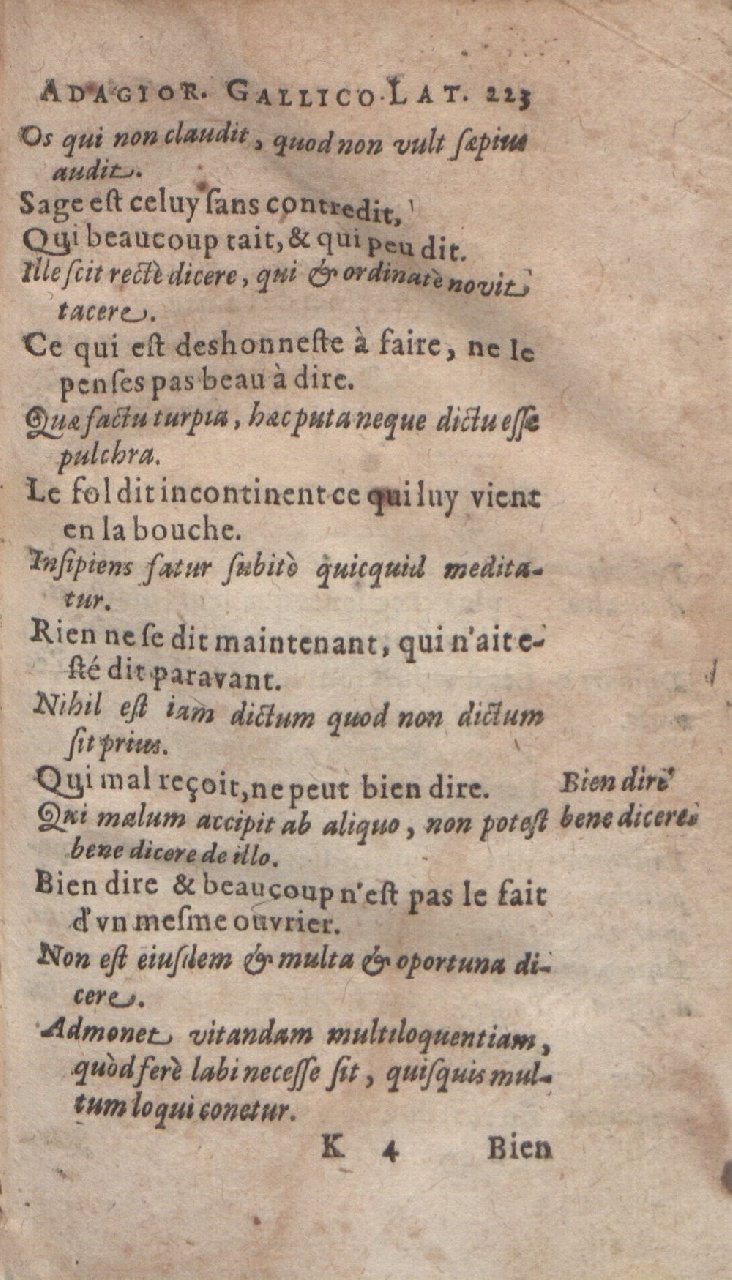 ADAGIOR. GALLICO-LAT. 223
Os qui non claudit, quod non vult sæpius
audit.
Sage est celuy sans contredit,
Qui beaucoup tait, & qui peu dit.
Ille scit rectè dicere, qui & ordinatè novit
tacere.
Ce qui est deshonneste à faire, ne le
penses pas beau à dire.
Quæ factu turpia, hæc puta neque dictu esse
pulchra.
Le fol dit incontinent ce qui luy vient
en la bouche.
Insipiens fatur subitò quicquid medita-
tur.
Rien ne se dit maintenant, qui n'ait e-
sté dit paravant.
Nihil est iam dictum quod non dictum
sit prius.
Qui mal reçoit, ne peut bien dire.
Bien dire
Qui malum accipit ab aliquo, non potest
bene dicere.
bene dicere de illo.
Bien dire & beaucoup n'est pas le fait
d'vn mesme ouvrier.
Non est eiusdem & multa & oportuna di-
cere.
Admonet vitandam multiloquentiam,
quòd ferè labi necesse sit, quisquis mul-
tum loqui conetur.
K 4 Bien